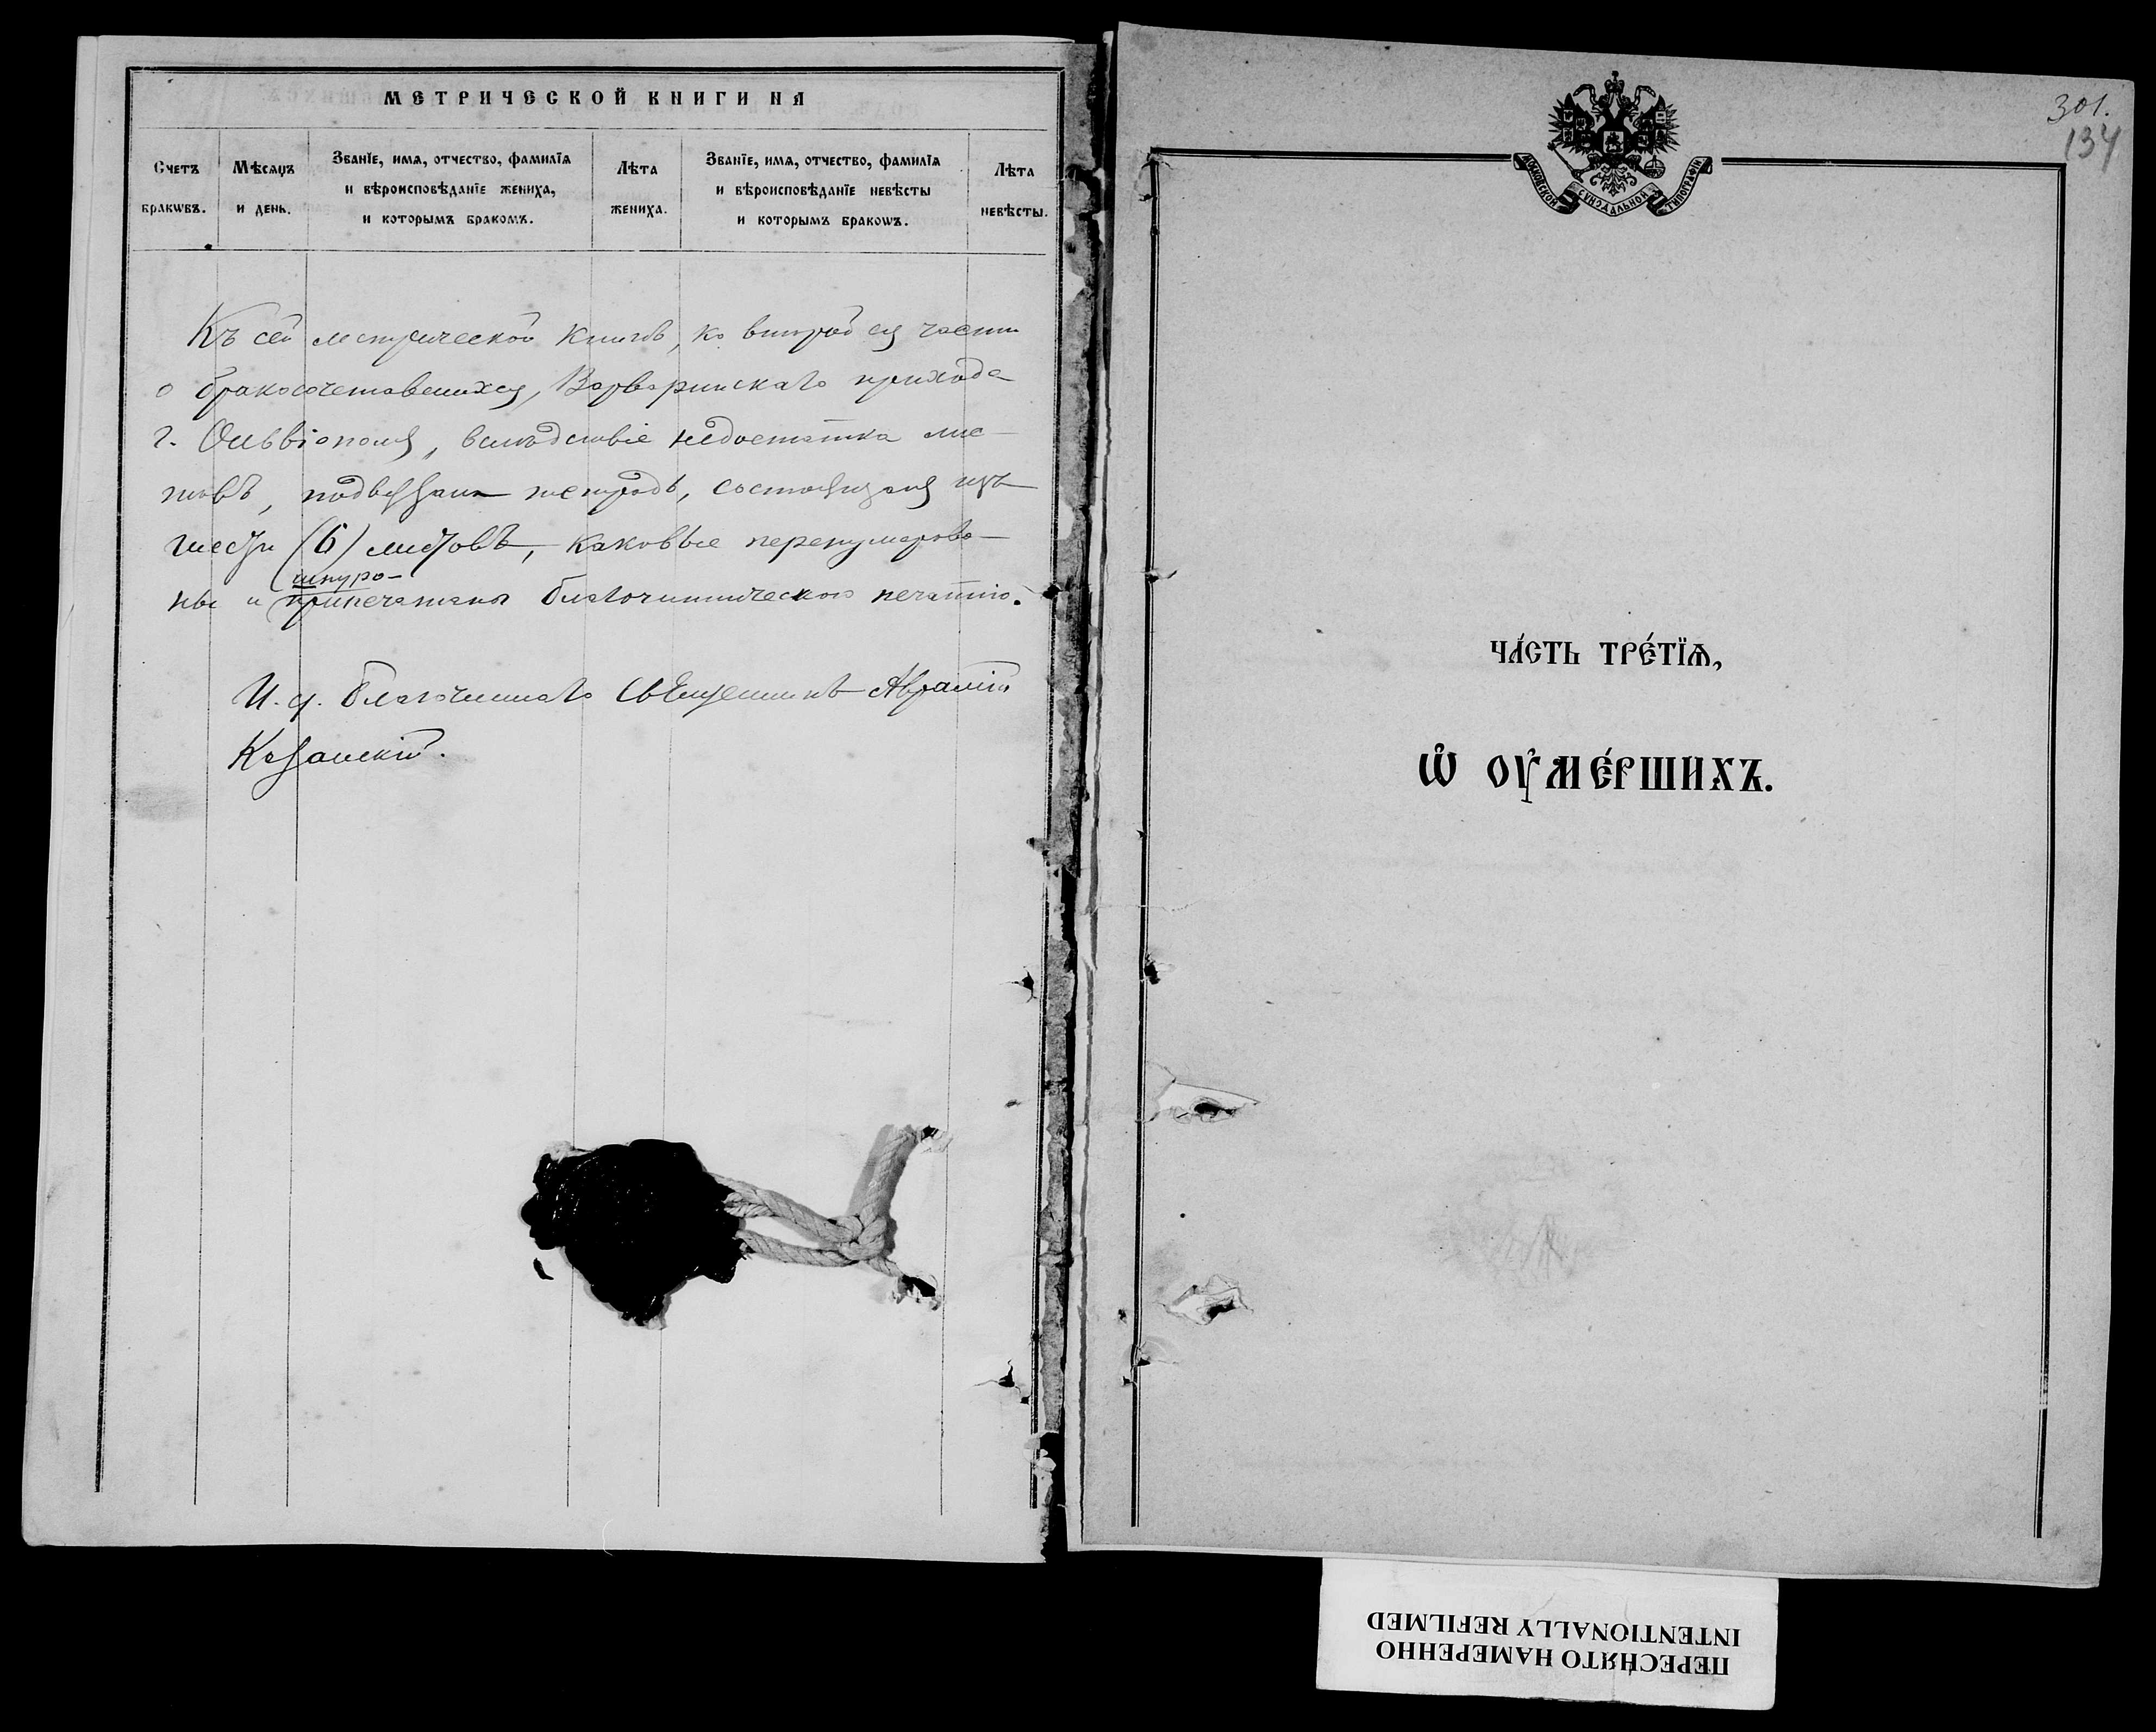 МЕТРИЧЕСКОЙ КНИГИ НА
Счетъ бракѡвъ.
Мѣсяцъ и день.
Званїе, имѧ, отчество, фамилїѧ
и вѣроисповѣданїе жениха,
и которымъ бракомъ.
Лѣта жениха.
Званїе, имѧ, отчество, фамилїѧ
и вѣроисповѣданїе невѣсты
и которымъ бракомъ.
Лѣта невѣсты.
Къ сей метрической книгѣ, ко второй ея части
о бракосочетавшихся, Варваринскаго прихода
г. Ольвіополя, вслѣдствіе недостатка лис-
товъ, подвязана тетрадь, состоящая изъ
шести (6) листовъ, каковые перенумерова-
шнуро-
ны и припечатаны благочинническою печатію.
И. д. Благочиннаго Священникъ Аврамій
Казанскій.
301.
134
МОСКОВСКОЙ СИНОДАЛЬНОЙ ТИПОГРАФІИ
ЧА́СТЬ ТРЕ́ТЇѦ,
Ѡ҆ ОУ҆МЕ́РШИХЪ.
ПЕРЕСНЯТО НАМЕРЕННО
INTENTIONALLY REFILMED